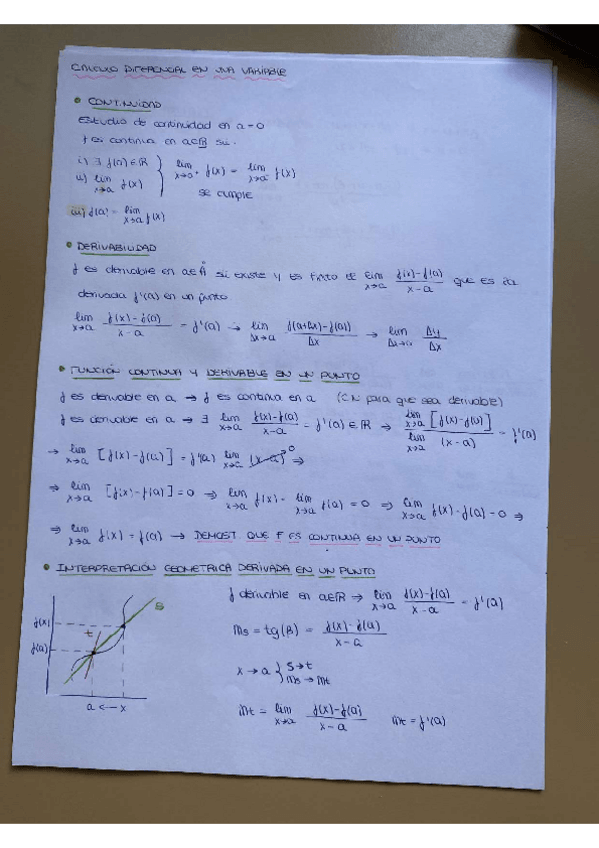 CALCULO DIFERENCIAL EN UNA VARIABLE
• CONTINUIDAD
Estudio de continuidad en a=0
f es continua en a∈ℝ si:
i) ∃ f(a) ∈ ℝ
ii) lim x→a f(x) } lim x→a⁺ f(x) = lim x→a⁻ f(x) se cumple
iii) f(a) = lim x→a f(x)
• DERIVABILIDAD
f es derivable en a∈Å si existe y es finito el lim x→a (f(x)-f(a))/(x-a) que es la
derivada f'(a) en un punto
lim x→a (f(x)-f(a))/(x-a) = f'(a) → lim Δx→o (f(a+Δx)-f(a))/Δx → lim Δx→o Δy/Δx
• FUNCIÓN CONTINUA Y DERIVABLE EN UN PUNTO
f es derivable en a → f es continua en a (CN para que sea derivable)
f es derivable en a → ∃ lim x→a (f(x)-f(a))/(x-a) = f'(a) ∈ ℝ ⇒ lim x→a [f(x)-f(a)] / lim x→a (x-a) = f'(a)
→ lim x→a [f(x)-f(a)] = f'(a) lim x→a (x-a) 0 ⇒
⇒ lim x→a [f(x)-f(a)] = 0 ⇒ lim x→a f(x) - lim x→a f(a) = 0 ⇒ lim x→a f(x)-f(a) = 0 ⇒
⇒ lim x→a f(x) = f(a) → DEMOST. QUE F ES CONTINUA EN UN PUNTO
• INTERPRETACIÓN GEOMETRICA DERIVADA EN UN PUNTO
f derivable en a∈ℝ → lim x→a (f(x)-f(a))/(x-a) = f'(a)
s
f(x)
t
f(a)
a ← x
ms = tg(β) = (f(x)-f(a))/(x-a)
x→a { s→t
ms→mt
mt = lim x→a (f(x)-f(a))/(x-a) mt = f'(a)